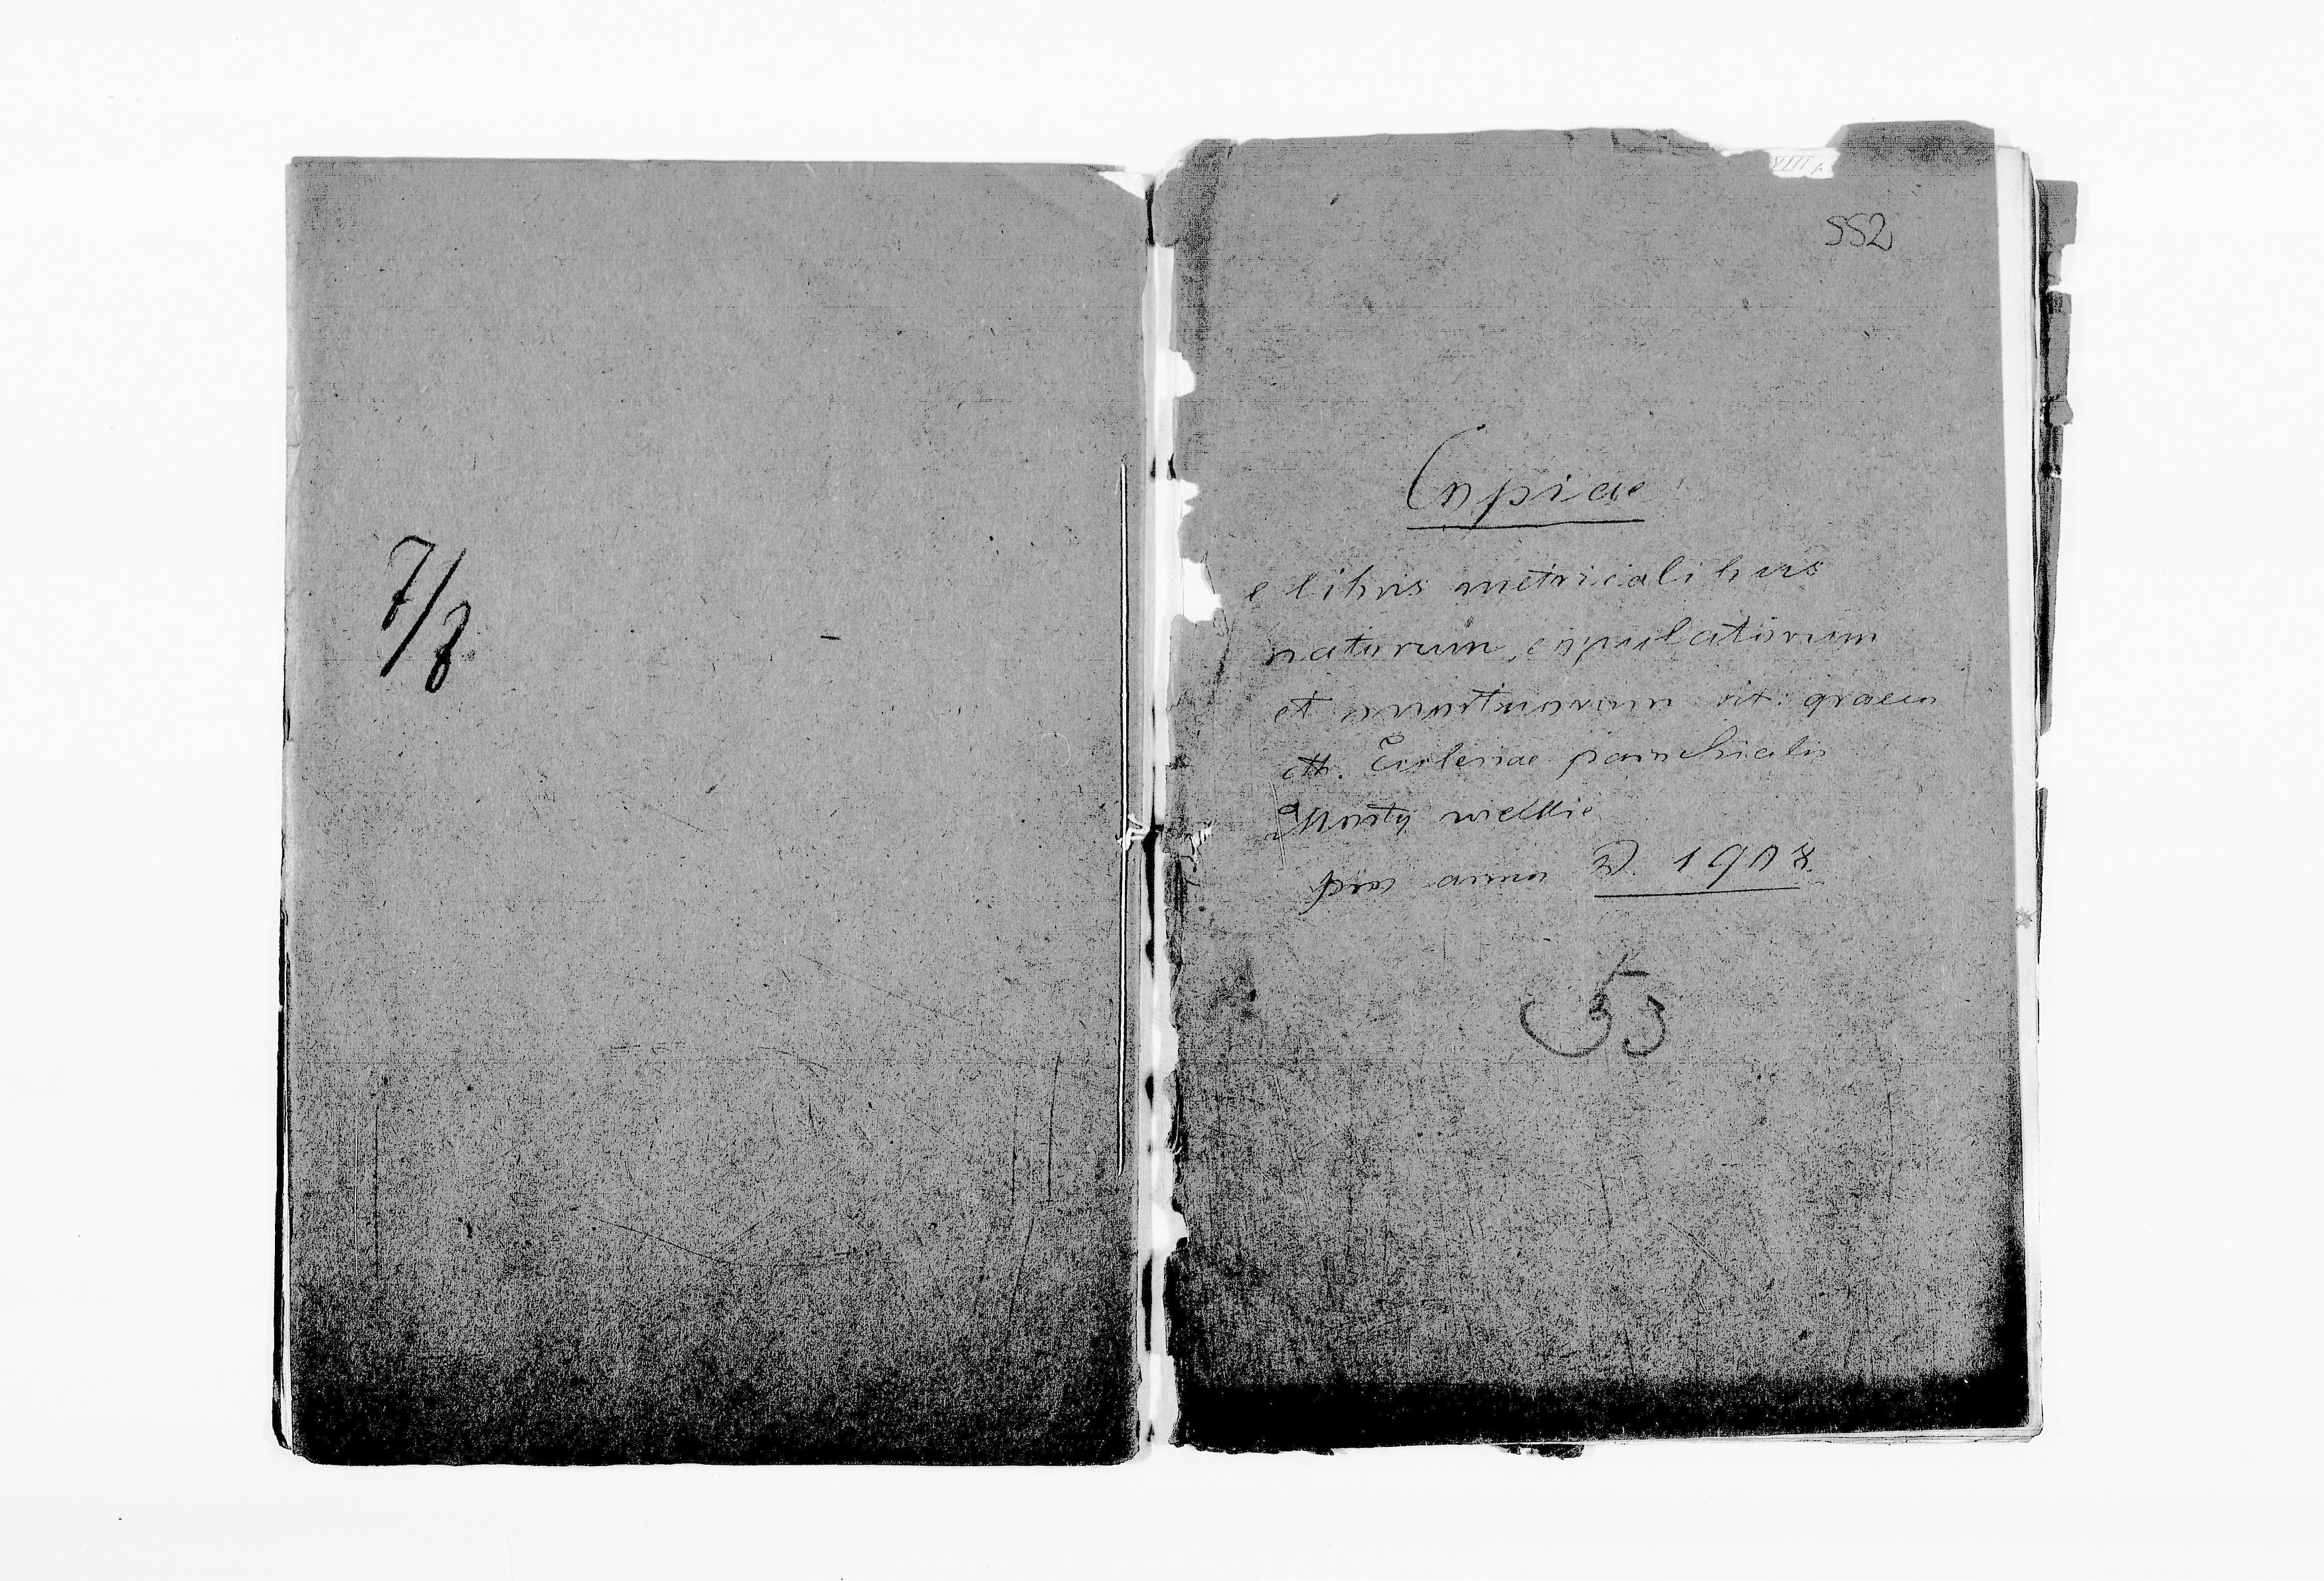 7/8
552
Copiae
e libris metricalibus
natorum, copulatorum
et mortuorum rit. graeco
cth. Ecclesiae parochialis
Mosty wielkie
pro anno D. 1908.
53